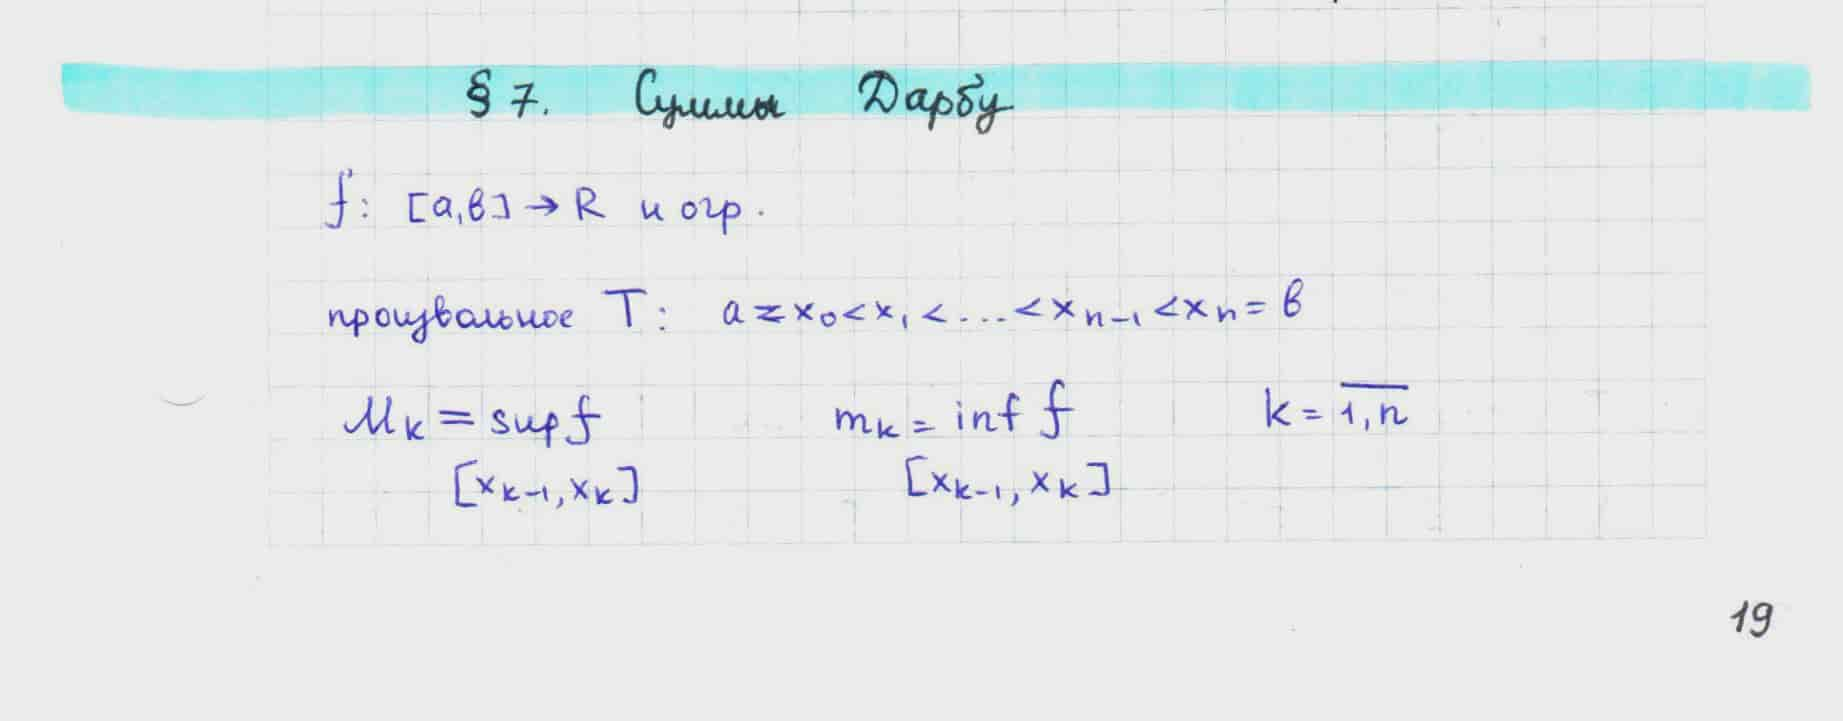 § 7. Суммы Дарбу
f: [a,b] → R и огр.
произвольное T: a = x₀ < x₁ < ... < xₙ₋₁ < xₙ = b
Mₖ = sup f mₖ = inf f k = 1,n̅
[xₖ₋₁, xₖ] [xₖ₋₁, xₖ]
19